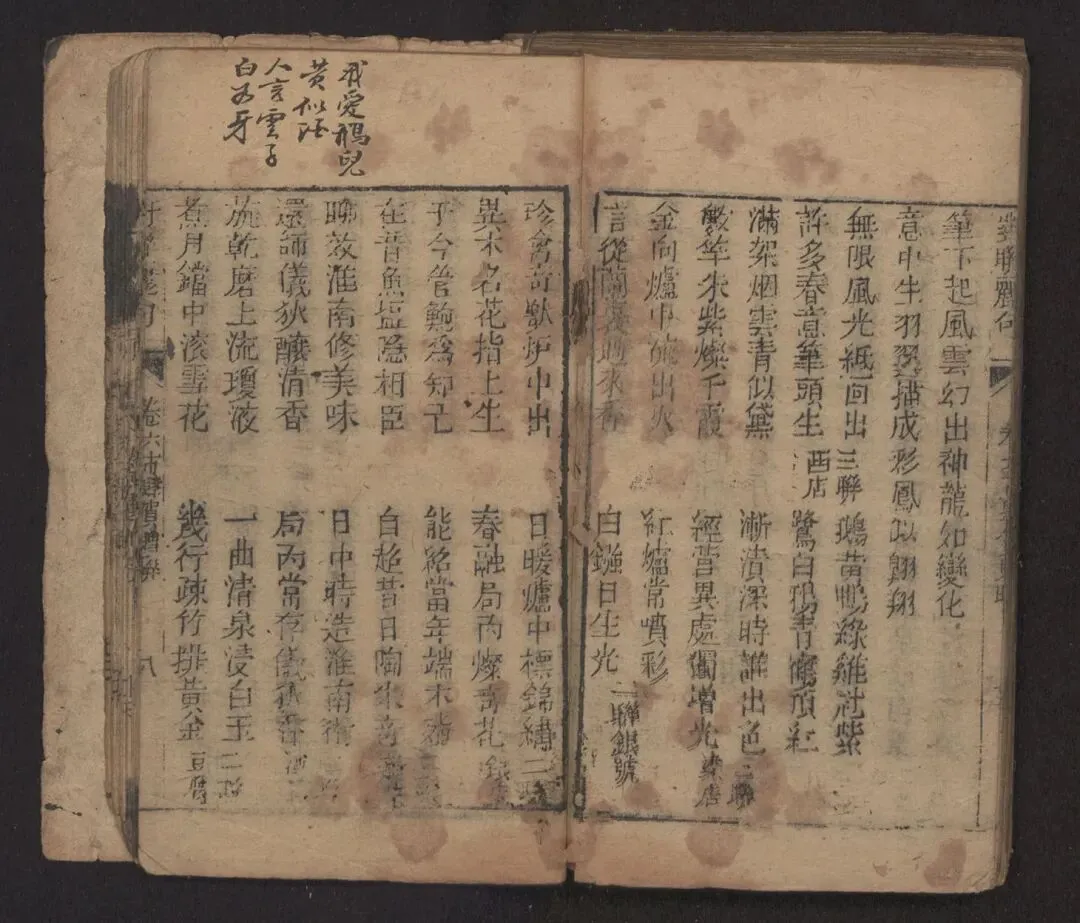 我愛鵝兒
黃似
人言雲子
白於牙
對聯
筆下起風雲幻出神龍如變化
意中生羽翼描成彩鳳似翱翔
無限風光紙面出 三聯 鵝黃鴨綠雞冠紫
許多春意筆頭生 画店 鷺白鴉青鶴頂紅
滿架烟雲青似黛 漸漬深時誰出色 二聯
數竿朱紫燦千霞 經營異處獨增光 染店
金向爐中流出火 紅爐常噴彩
言從蘭 來香 白鏹日生光 二聯銀號
珍禽奇獸炉中出 日暖爐中標錦繡 二
異木名花指上生 春融局內燦奇花
于今管範為知己 能紹當年端木
在昔魚塩隐相臣 自超昔日陶朱
聊效淮南修美味 日中時造淮南術
還師儀狄釀清香 局內常存儀狄
旋乾磨上流瓊液 一曲清泉浸白玉 二
煮月鐺中滾雪花 幾行疎竹排黃金 豆腐
卷六 八